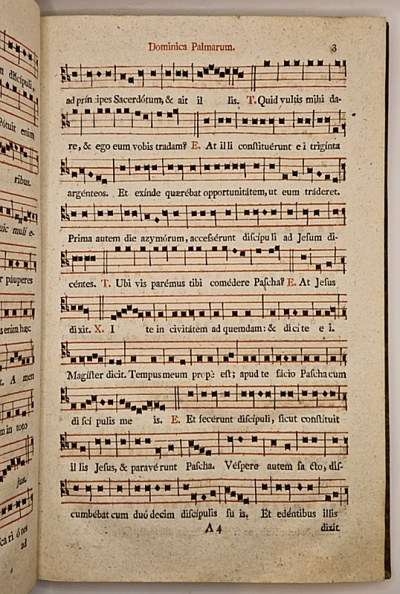 diſcipuli,
Potuit enim
ribus.
uic muli e-
r pauperes
s enim hæc
t. A men
m in toto
jus.
ca ri ó tes
ad
Dominica Palmarum. 3
ad prin cipes Sacerdótum, & ait il lis. T. Quid vultis mihi da-
re, & ego eum vobis tradam? E. At il li conſtituérunt e i trigínta
argénteos. Et exínde quærébat opportunitátem, ut eum tráderet.
Prima autem die azymórum, acceſſérunt diſcipu li ad Jeſum di-
céntes. T. Ubi vis parémus tibi comédere Paſcha? E. At Jeſus
dixit. X. I te in civitátem ad quemdam: & di ci te e i.
Magíſter dicit. Tempus meum propè eſt; apud te fácio Paſcha cum
di ſcí pulis me is. E. Et fecérunt diſcípuli, ſicut conſtítuit
il lis Jeſus, & paravé runt Paſcha. Véſpere autem fa cto, diſ-
cumbébat cum duó decim diſcípulis ſu is. Et edéntibus illis
A 4 dixit